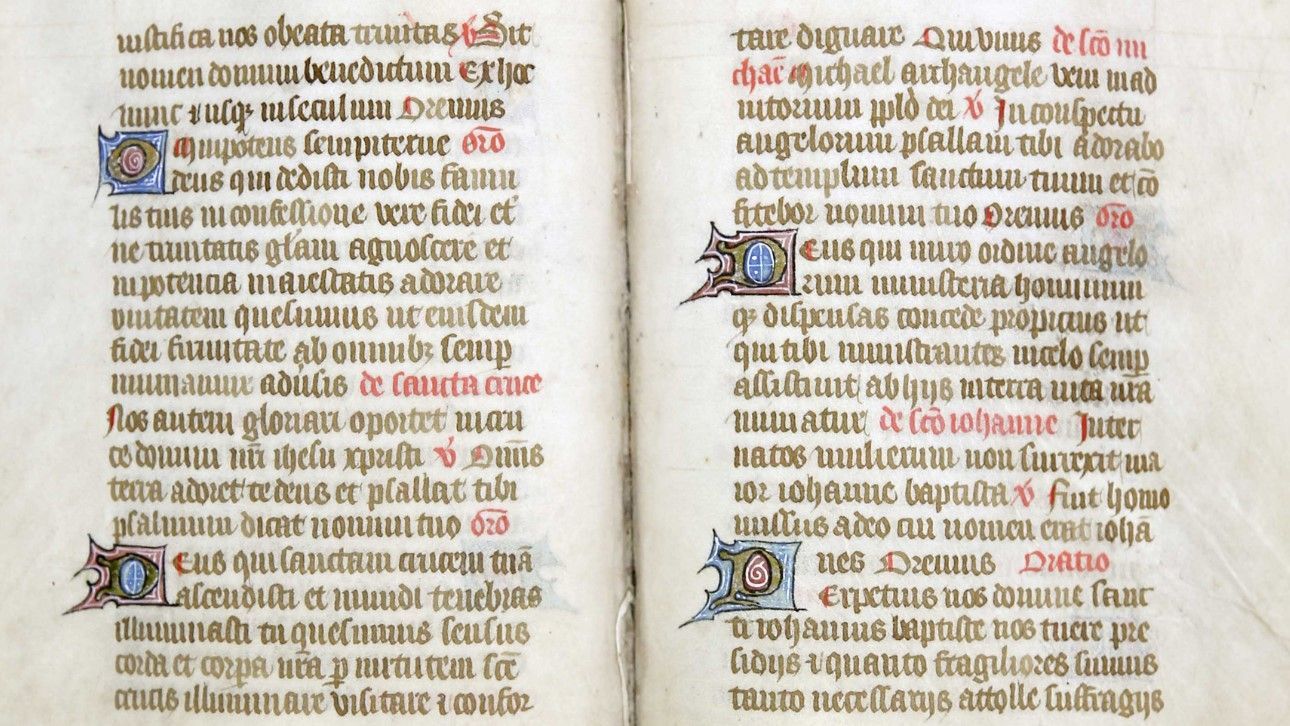 iustifica nos o beata trinitas v Sit
nomen domini benedictum Ex hoc
nunc ⁊ usqꝫ in seculum Oremus
Omipotens sempiterne oro
deus qui dedisti nobis famu
lis tuis in confessione vere fidei et
ne trinitatis glam agnoscere et
in potencia maiestatis adorare
vnitatem quesumus ut eiusdem
fidei firmitate ab omnibꝫ semp
muniamur adusis de sancta cruce
Nos autem gloriari oportet in cru
ce domini nri ihesu xpristi v Omis
terra adoret te deus et psallat tibi
psalmum dicat nomini tuo oro
Deus qui sanctam crucem tuā
ascendisti et mundi tenebras
illuminasti tu quesumus sensus
corda et corpa nra p uirtutem sce
crucis illuminare visitare ⁊ confor
tare dignare Qui viuis de sco mi
chae Michael archangele veni in ad
iutorium pplo dei v In conspectu
angelorum psallam tibi adorabo
ad templum sanctum tuum et co
fitebor nomini tuo Oremus oro
Deus qui miro ordine angelo
rum ministeria hominum
qꝫ dispensas concede propicius ut
qui tibi ministrantes in celo semp
assistunt ab hijs in terra uita nra
muniatur de sco iohanne Inter
natos mulierum non surrexit ma
ior iohanne baptista v Fuit homo
missus a deo cui nomen erat iohā
nes Oremus Oratio
Perpetuis nos domine sanc
ti iohannis baptiste nos tuere pre
sidijs ⁊ quanto fragiliores sumus
tanto necessarijs attolle suffragijs